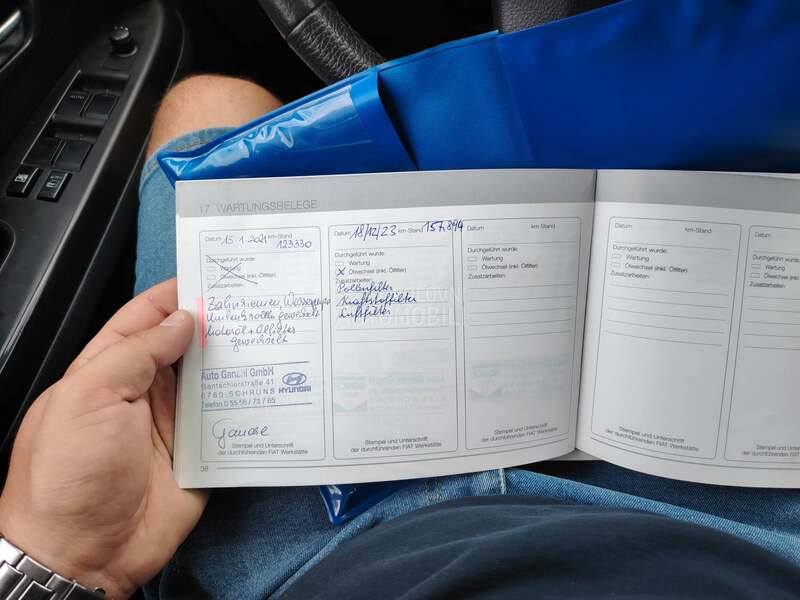 17. WARTUNGSBELEGE
Datum 15.1.2021 km-Stand 123330
Durchgeführt wurde:
Wartung
Ölwechsel (inkl. Ölfilter)
Zusatzarbeiten:
Zahnriemen, Wasserpumpe
Umlenkrolle gewechselt
Motoröl + Ölfilter
gewechselt
Auto Ganahl GmbH
Gantschierstraße 41
6780 SCHRUNS
HYUNDAI
Telefon 0 55 56 / 73 / 65
Stempel und Unterschrift
der durchführenden FIAT Werkstätte
38
Datum 18/12/23 km-Stand 157.894
Durchgeführt wurde:
Wartung
X Ölwechsel (inkl. Ölfilter)
Zusatzarbeiten:
Pollenfilter
Kraftstoffilter
Luftfilter
Stempel und Unterschrift
der durchführenden FIAT Werkstätte
Datum km-Stand
Durchgeführt wurde:
Wartung
Ölwechsel (inkl. Ölfilter)
Zusatzarbeiten:
Stempel und Unterschrift
der durchführenden FIAT Werkstätte
Datum km-Stand
Durchgeführt wurde:
Wartung
Ölwechsel (inkl. Ölfilter)
Zusatzarbeiten:
Stempel und Unterschrift
der durchführenden FIAT Werkstätte
Datum
Durchgeführt wurde:
Wartung
Ölwechsel
Zusatzarbeiten:
Stempel
der durchführenden
AUTO